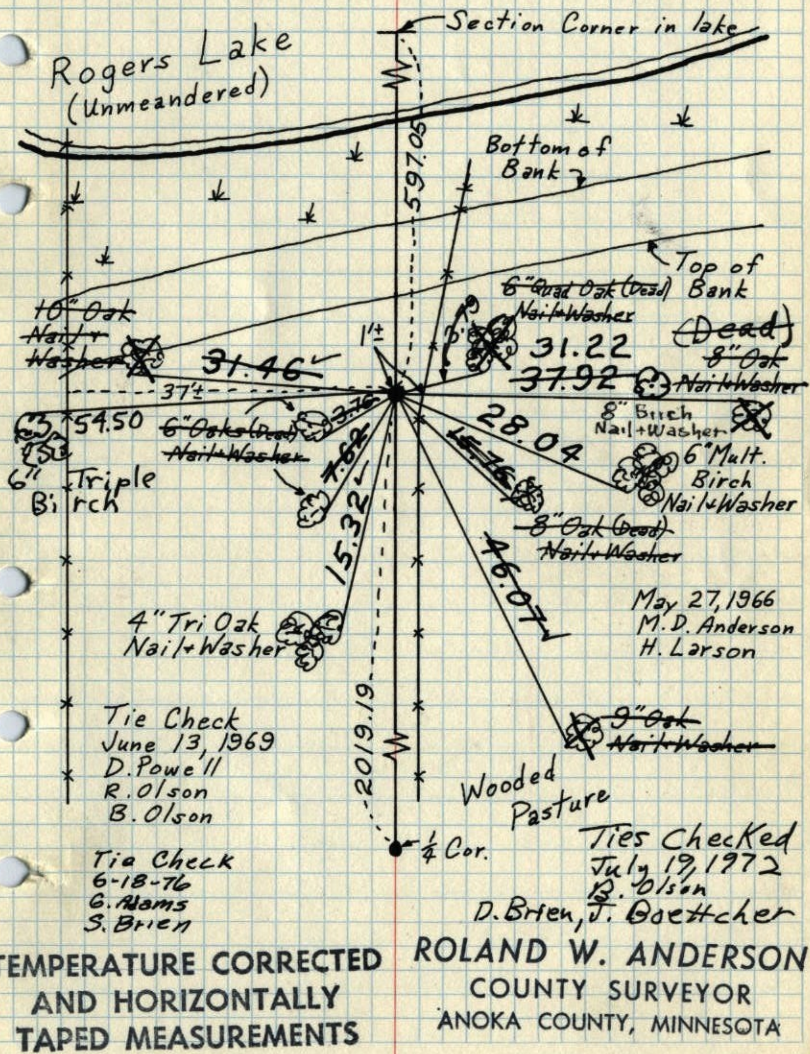 Section Corner in lake
Rogers Lake
(Unmeandered)
597.05
Bottom of
Bank
Top of
Bank
10" Oak
Nail +
Washer
31.46
1'±
6" Quad Oak (Dead)
Nail+Washer
31.22
37.92
(Dead)
8" Oak
Nail+Washer
8" Birch
Nail+Washer
37'±
54.50
6" Triple
Birch
6" Oaks (Dead)
Nail+Washer
3.76
7.62
15.32
28.04
15.76
6" Mult.
Birch
Nail+Washer
8" Oak (Dead)
Nail+Washer
46.07
May 27, 1966
M.D. Anderson
H. Larson
4" Tri Oak
Nail+Washer
2019.19
9" Oak
Nail+Washer
Tie Check
June 13, 1969
D. Powell
R. Olson
B. Olson
Wooded
Pasture
1/4 Cor.
Tie Check
6-18-76
G. Adams
S. Brien
Ties Checked
July 19, 1972
B. Olson
D. Brien, J. Boettcher
TEMPERATURE CORRECTED
AND HORIZONTALLY
TAPED MEASUREMENTS
ROLAND W. ANDERSON
COUNTY SURVEYOR
ANOKA COUNTY, MINNESOTA